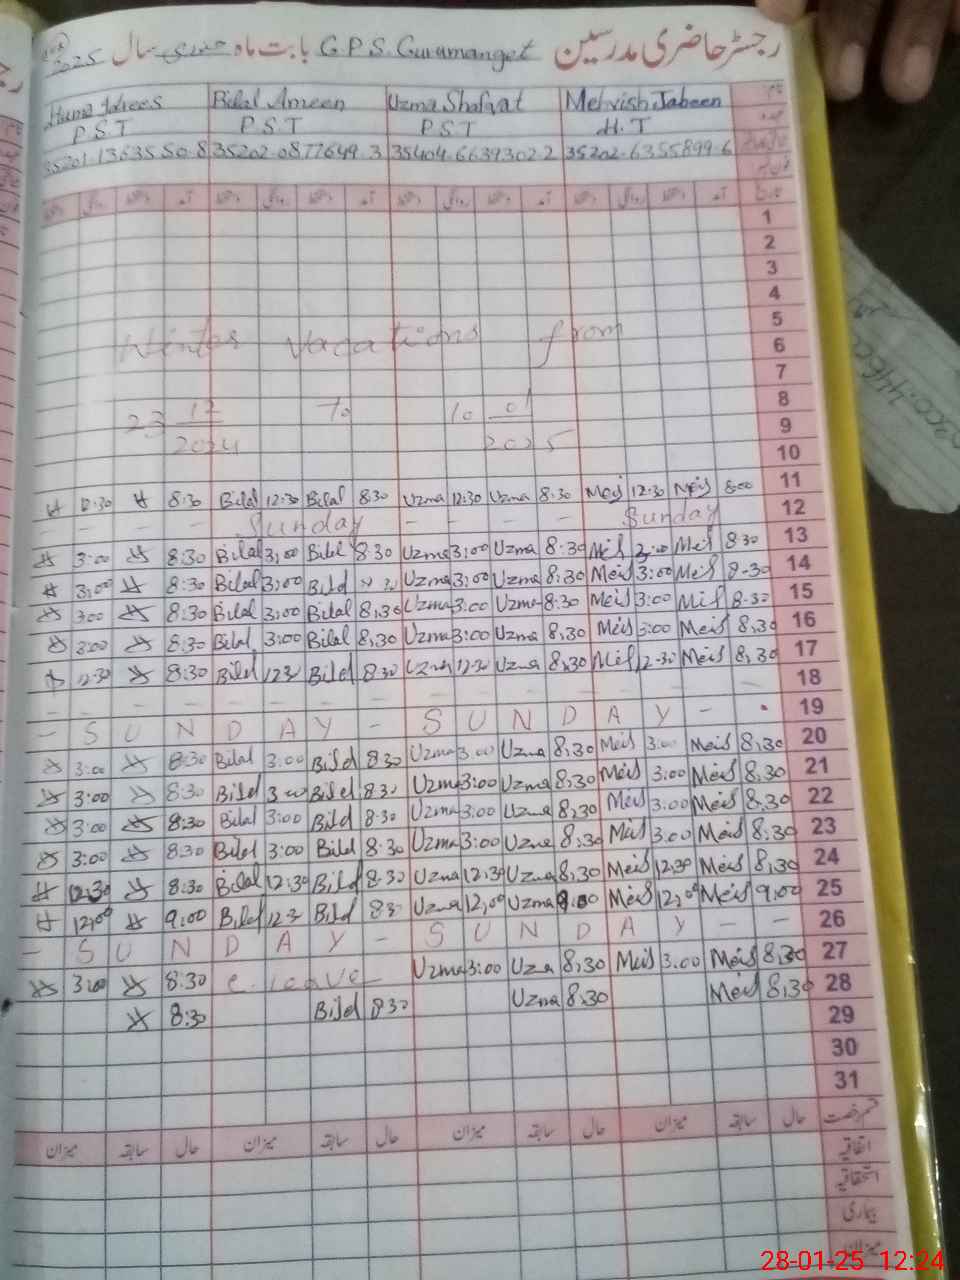 رجسٹر حاضری مدرسین G.P.S. Guramanget بابت ماہ جنوری سال 2025
Huma Idrees Bilal Ameen Uzma Shafqat Mehvish Jabeen نام
P.S.T P.S.T P.S.T H.T عہدہ
35201-1363550-8 35202-0877649-3 35404-6639302-2 35202-6355899-6
1
2
3
4
5
Winter vacations from 6
7
8
23 12/2024 To 10 01/2025 9
10
12:30 8:30 Bilal 12:30 Bilal 8:30 Uzma 12:30 Uzma 8:30 Meis 12:30 Meis 8:00 11
- - - - Sunday - - - - Sunday 12
3:00 8:30 Bilal 3:00 Bilal 8:30 Uzma 3:00 Uzma 8:30 Meis 3:00 Meis 8:30 13
3:00 8:30 Bilal 3:00 Bilal Uzma 3:00 Uzma 8:30 Meis 3:00 Meis 8-30 14
3:00 8:30 Bilal 3:00 Bilal 8:30 Uzma 3:00 Uzma 8:30 Meis 3:00 Meis 8-30 15
3:00 8:30 Bilal 3:00 Bilal 8:30 Uzma 3:00 Uzma 8:30 Meis 3:00 Meis 8:30 16
12:30 8:30 Bilal 123 Bilal 8:30 Uzma 12:30 Uzma 8:30 Meis 12-30 Meis 8:30 17
- - - - - - - - - - - - - - 18
- S U N D A Y - S U N D A Y - 19
3:00 8:30 Bilal 3:00 Bilal 8:30 Uzma 3:00 Uzma 8:30 Meis 3:00 Meis 8:30 20
3:00 8:30 Bilal 3:00 Bilal 8:30 Uzma 3:00 Uzma 8:30 Meis 3:00 Meis 8:30 21
3:00 8:30 Bilal 3:00 Bilal 8:30 Uzma 3:00 Uzma 8:30 Meis 3:00 Meis 8:30 22
3:00 8:30 Bilal 3:00 Bilal 8:30 Uzma 3:00 Uzma 8:30 Meis 3:00 Meis 8:30 23
12:30 8:30 Bilal 12:30 Bilal 8:30 Uzma 12:30 Uzma 8:30 Meis 12:30 Meis 8:30 24
12:00 9:00 Bilal 123 Bilal 83 Uzma 12:00 Uzma 9:00 Meis 12:00 Meis 9:00 25
- S U N D A Y - S U N D A Y - - 26
3:00 8:30 C. leave Uzma 3:00 Uzma 8:30 Meis 3:00 Meis 8:30 27
8:30 Bilal 8:30 Uzma 8:30 Meis 8:30 28
29
30
31
میزان سابقہ حال میزان سابقہ حال میزان سابقہ حال میزان سابقہ حال قسم رخصت
اتفاقیہ
استحقاقیہ
بیماری
میزان
28-01-25 12:24